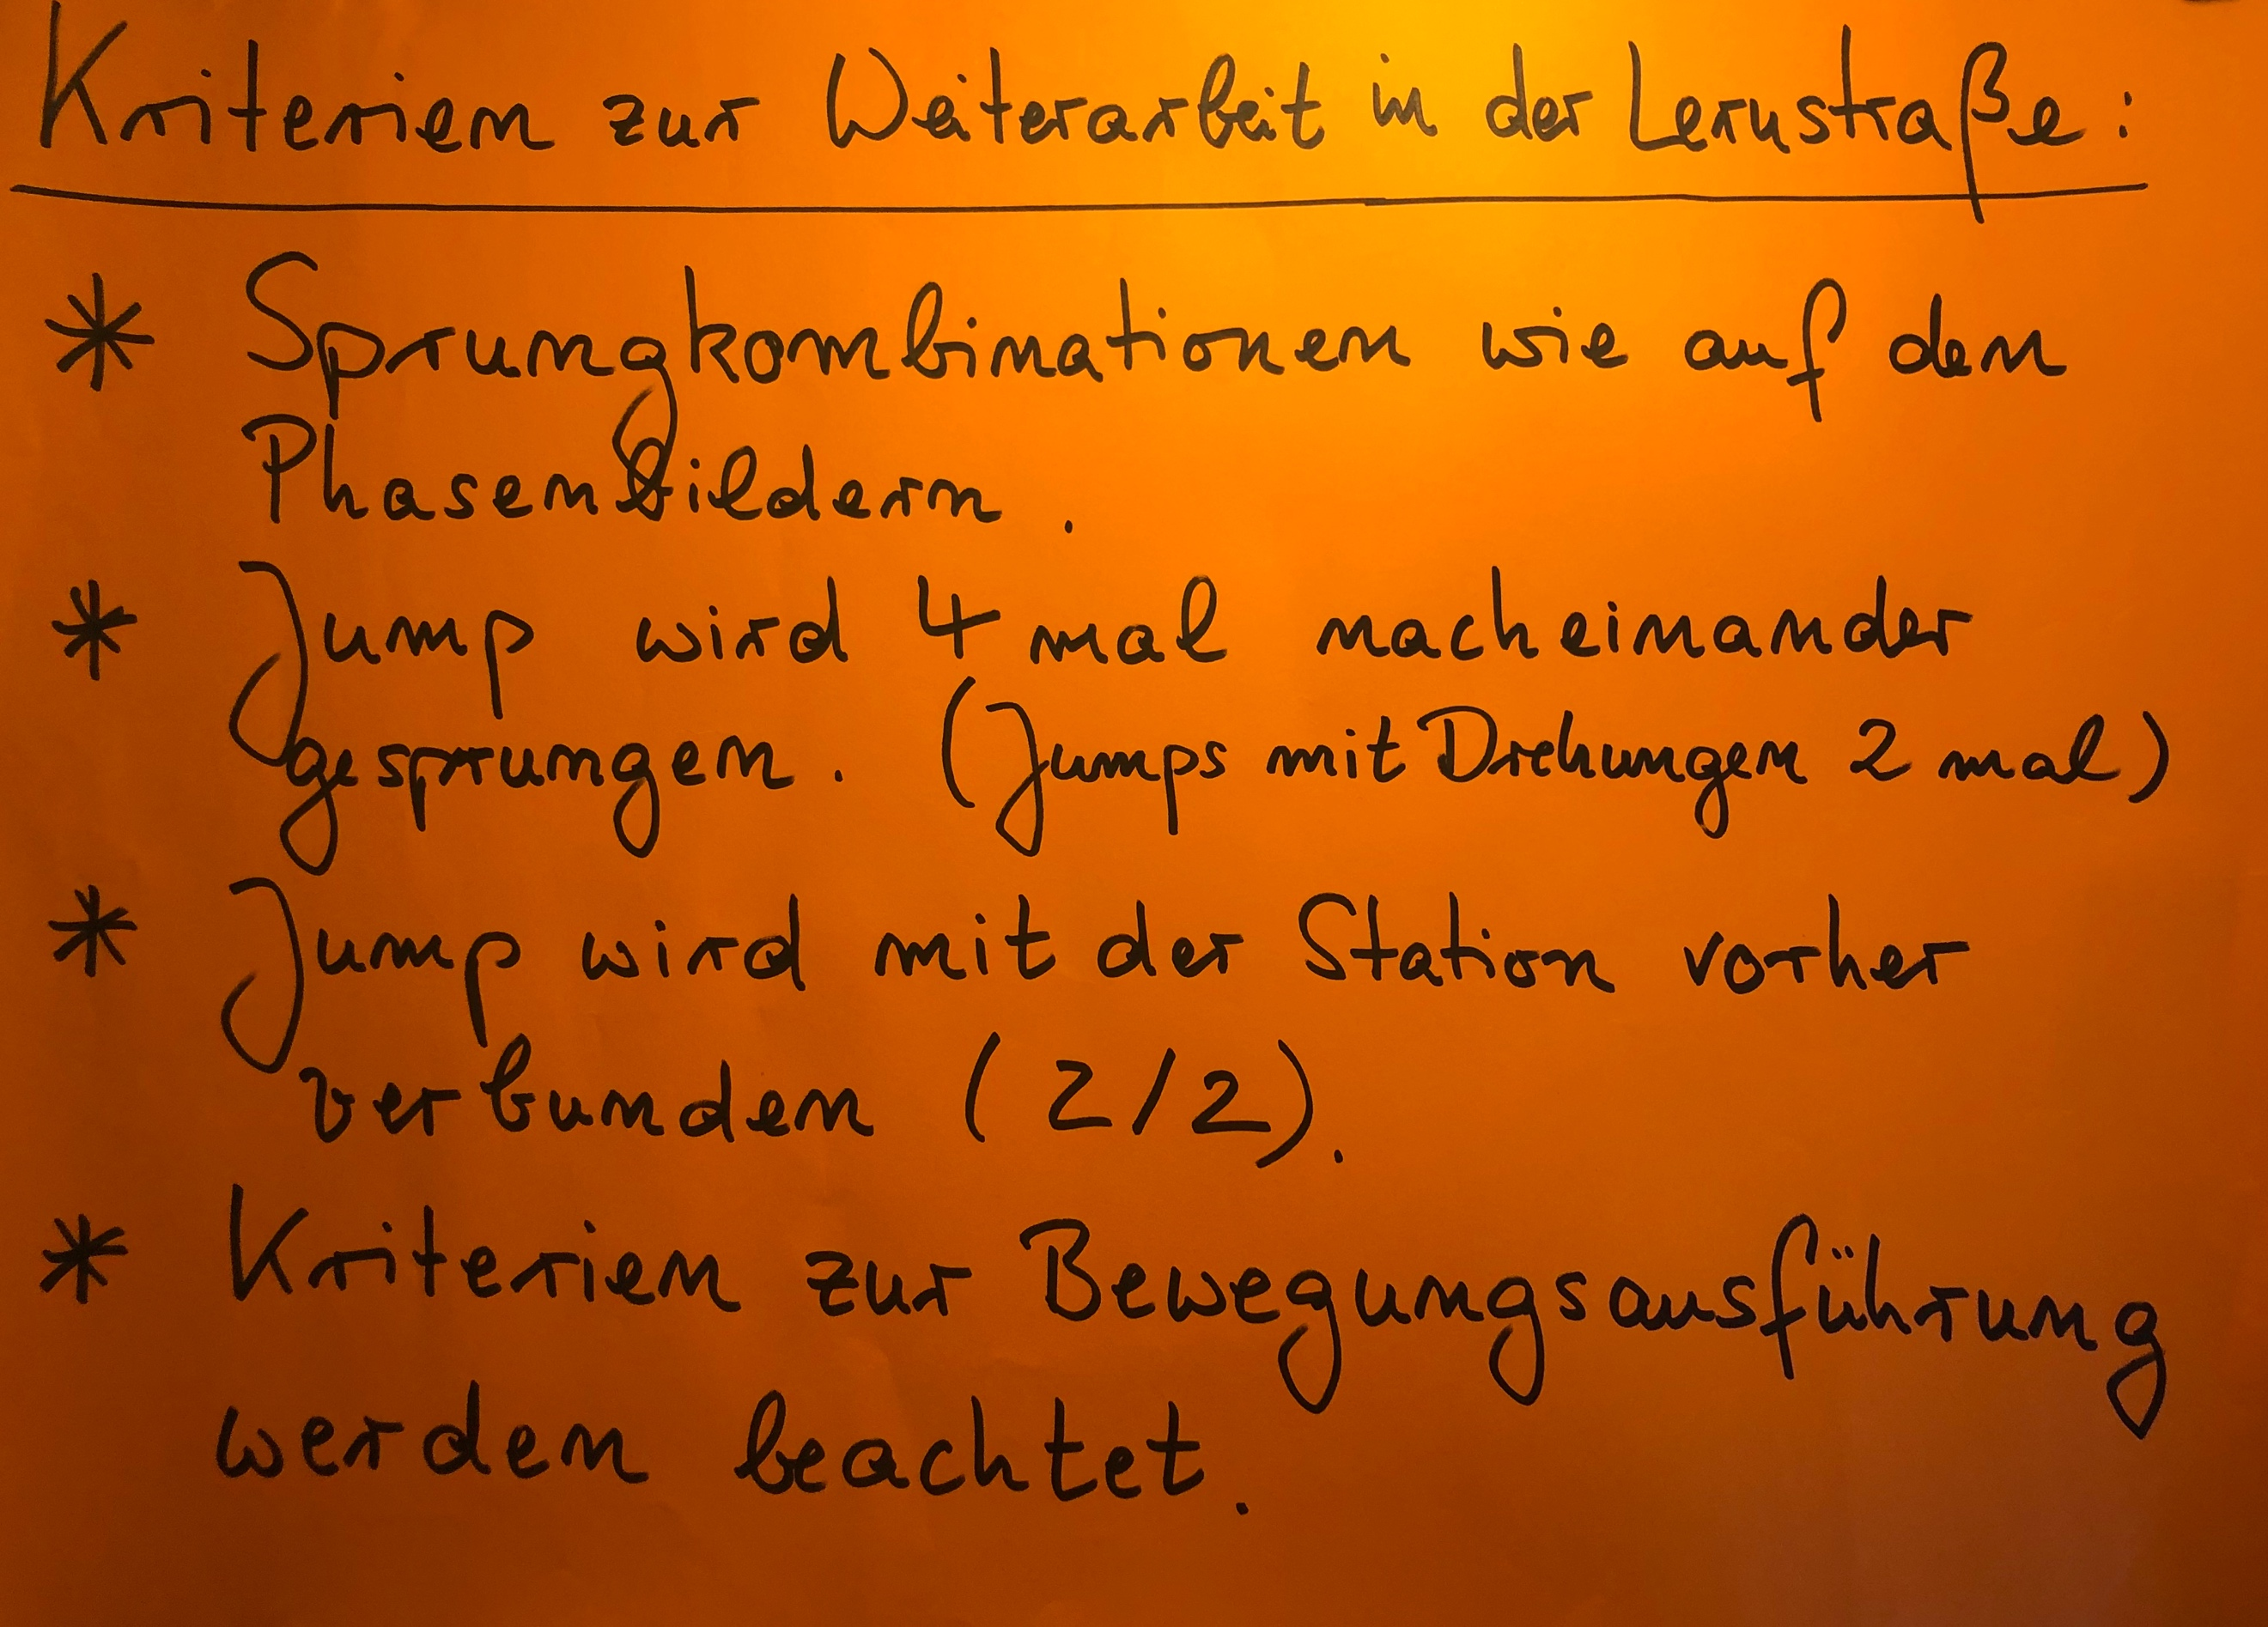 Kriterien zur Weiterarbeit in der Lernstraße:
* Sprungkombinationen wie auf den
Phasenbildern.
* Jump wird 4 mal nacheinander
gesprungen. (Jumps mit Drehungen 2 mal)
* Jump wird mit der Station vorher
verbunden (2/2).
* Kriterien zur Bewegungsausführung
werden beachtet.